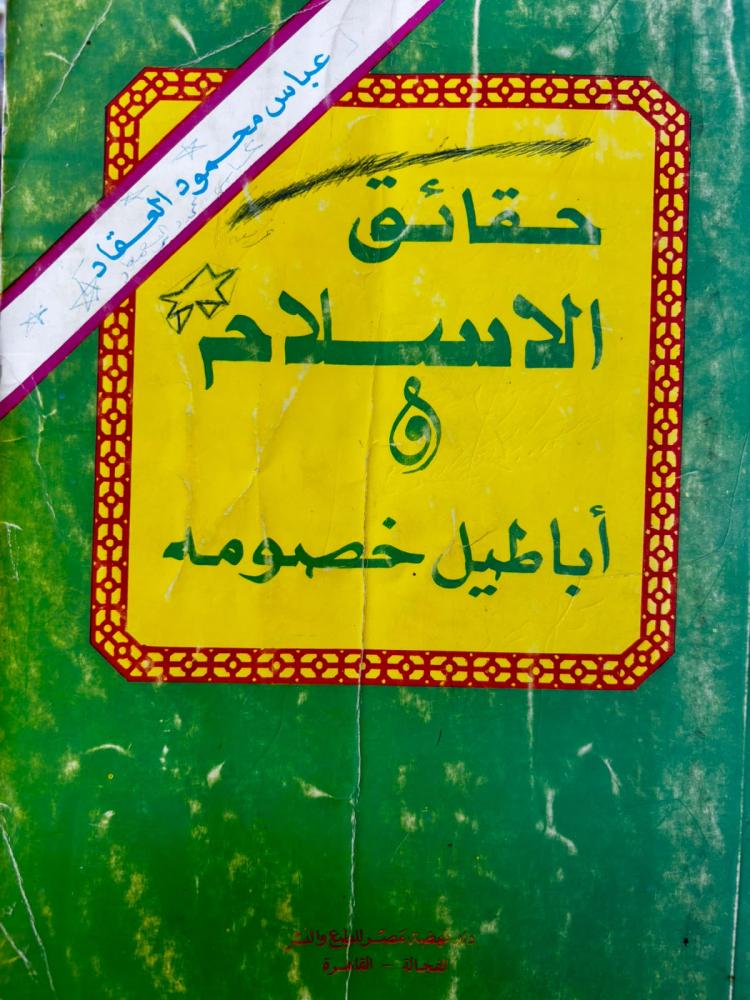 عباس محمود العقاد
حقائق
الاسلام
و
أباطيل خصومه
دار نهضة مصر للطبع والنشر
الفجالة - القاهرة